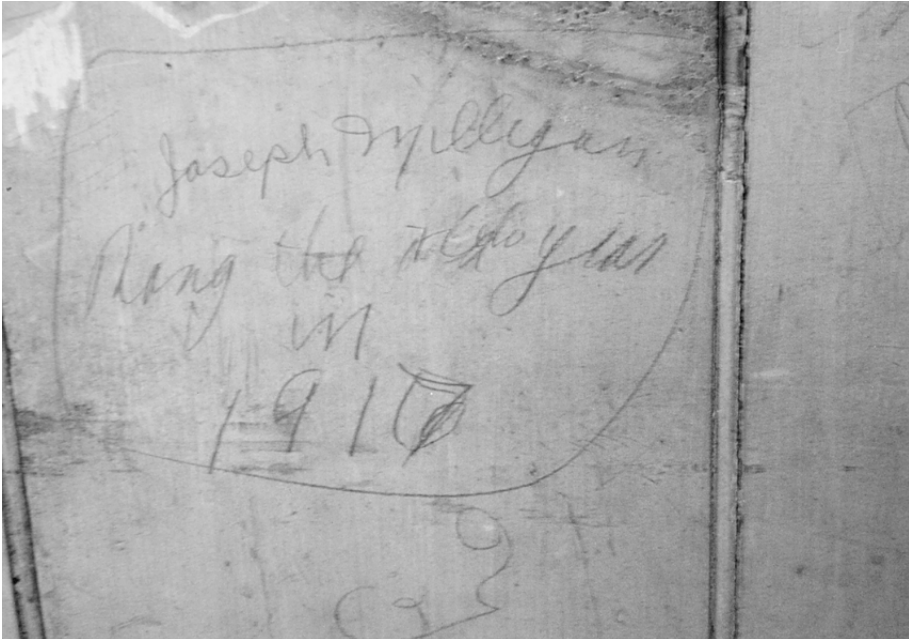 Joseph Milligan
Rang the New year
in
1917